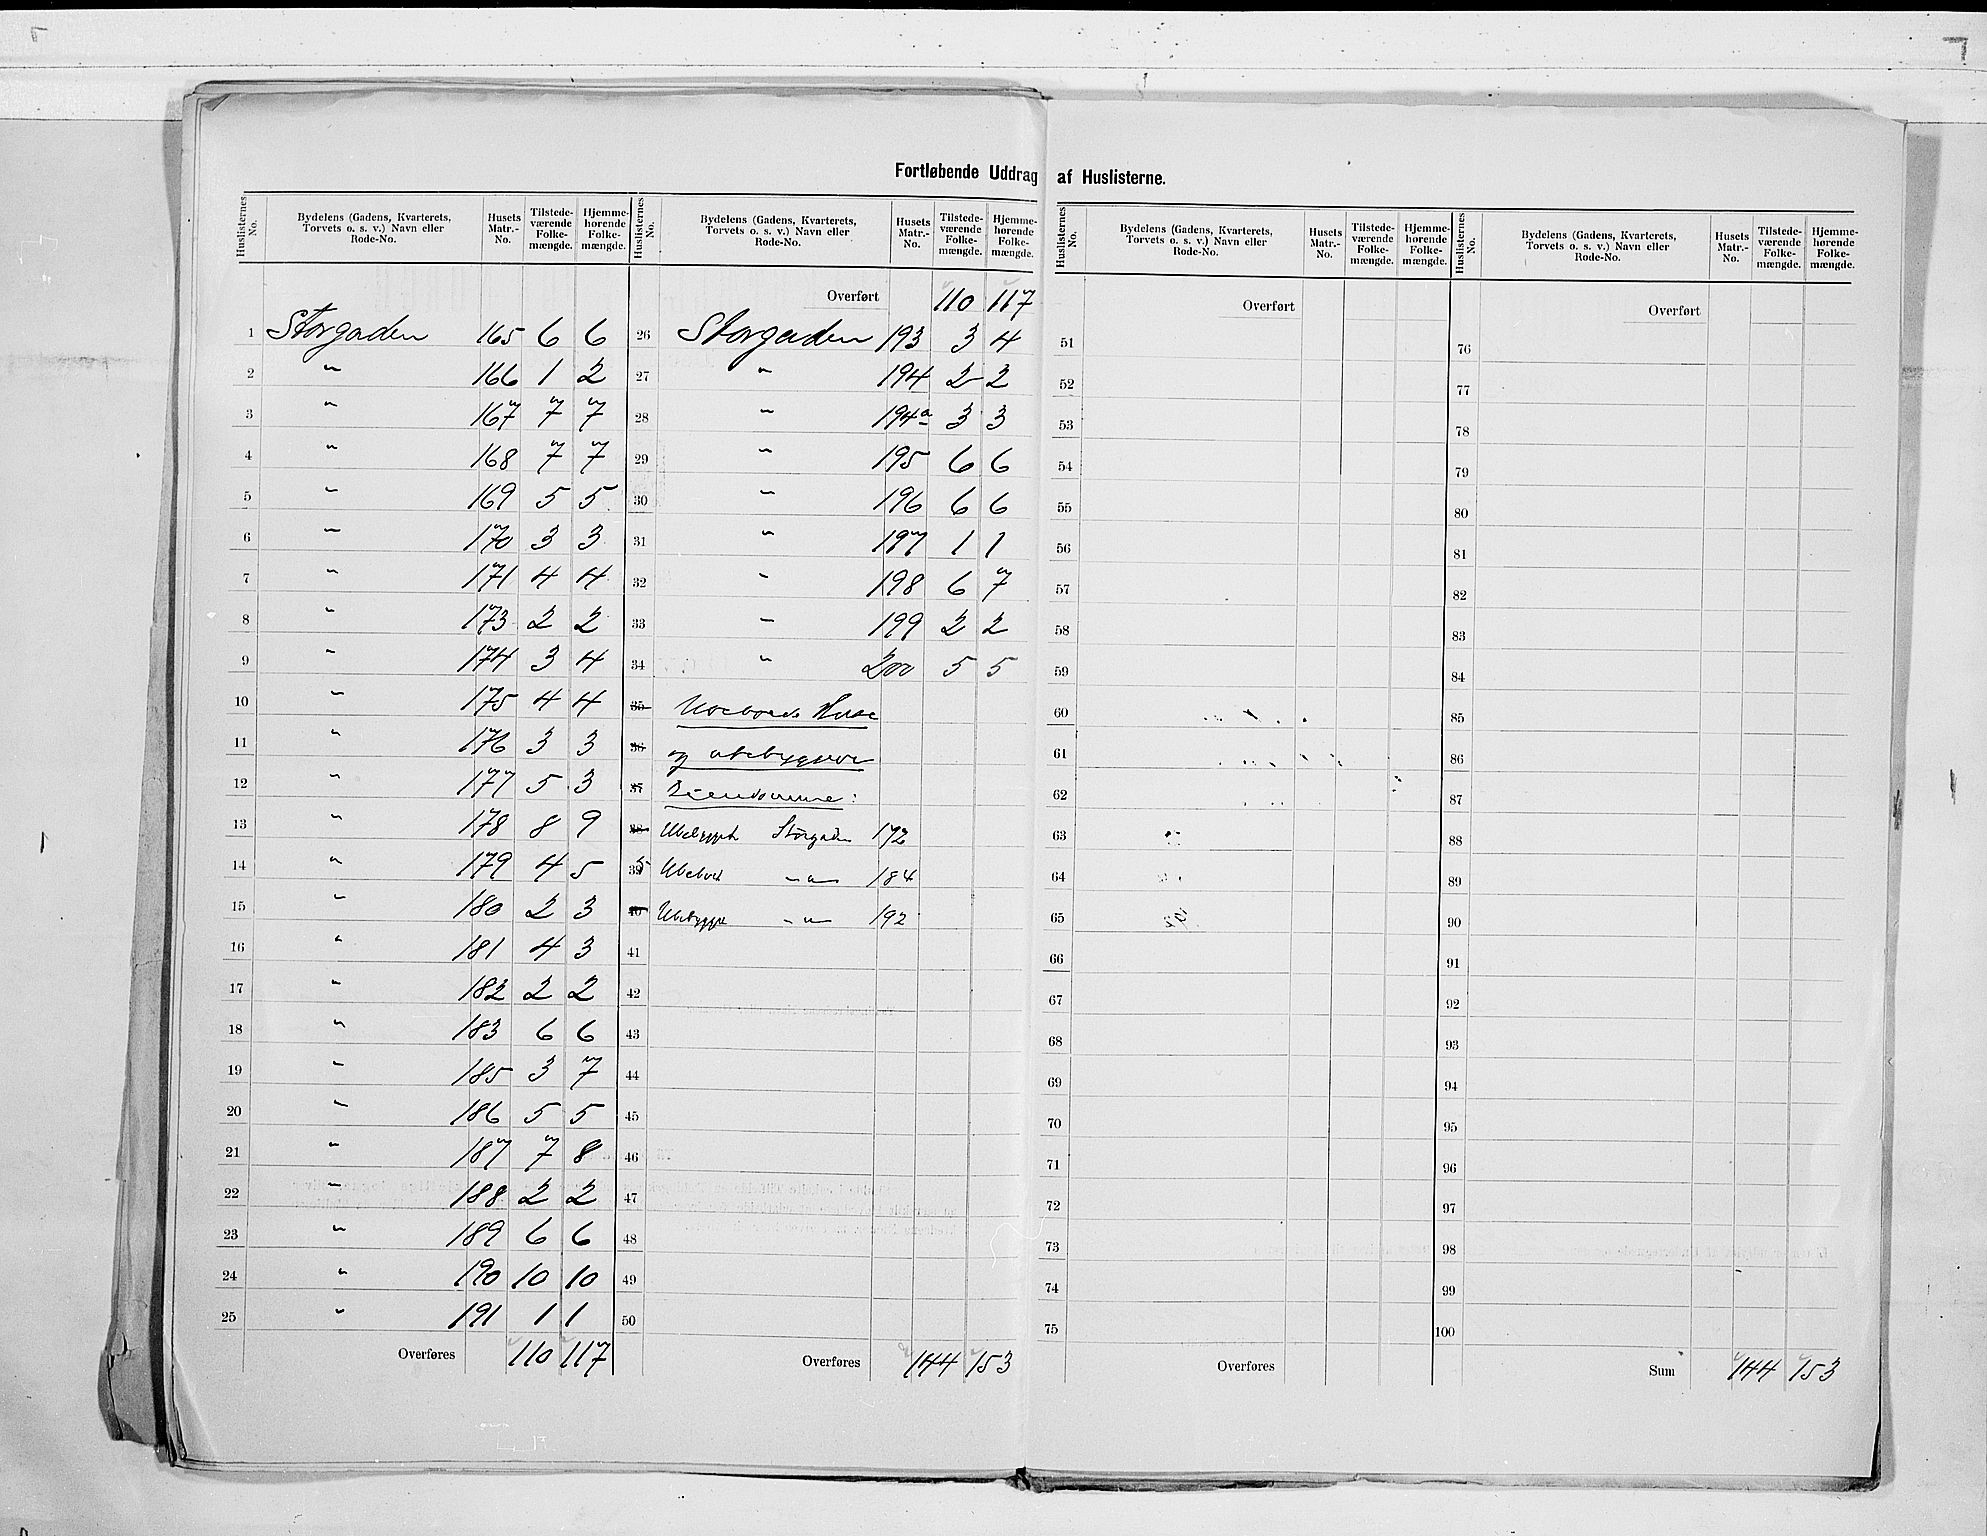 Fortløbende Uddrag af Huslisterne.
Huslisternes No. Bydelens (Gadens, Kvarterets, Torvets o. s. v.) Navn eller Rode-No. Husets Matr.-No. Tilstede-værende Folke-mængde. Hjemme-hørende Folke-mængde.
1 Storgaden 165 6 6
2 " 166 1 2
3 " 167 7 7
4 " 168 7 7
5 " 169 5 5
6 " 170 3 3
7 " 171 4 4
8 " 173 2 2
9 " 174 3 4
10 " 175 4 4
11 " 176 3 3
12 " 177 5 3
13 " 178 8 9
14 " 179 4 5
15 " 180 2 3
16 " 181 4 3
17 " 182 2 2
18 " 183 6 6
19 " 185 3 7
20 " 186 5 5
21 " 187 7 8
22 " 188 2 2
23 " 189 6 6
24 " 190 10 10
25 " 191 1 1
Overføres 110 117
Huslisternes No. Bydelens (Gadens, Kvarterets, Torvets o. s. v.) Navn eller Rode-No. Husets Matr.-No. Tilstede-værende Folke-mængde. Hjemme-hørende Folke-mængde.
Overført 110 117
26 Storgaden 193 3 4
27 " 194 2 2
28 " 194a 3 3
29 " 195 6 6
30 " 196 6 6
31 " 197 1 1
32 " 198 6 7
33 " 199 2 2
34 " 200 5 5
35 Ubeboede Huse
36 og ubebyggede
37 Eiendomme:
38 Ubebygget Storgaden 172
39 Ubeboet " 184
40 Ubebygget " 192
41
42
43
44
45
46
47
48
49
50
Overføres 144 153
Huslisternes No. Bydelens (Gadens, Kvarterets, Torvets o. s. v.) Navn eller Rode-No. Husets Matr.-No. Tilstede-værende Folke-mængde. Hjemme-hørende Folke-mængde.
Overført
51
52
53
54
55
56
57
58
59
60
61
62
63
64
65
66
67
68
69
70
71
72
73
74
75
Overføres
Huslisternes No. Bydelens (Gadens, Kvarterets, Torvets o. s. v.) Navn eller Rode-No. Husets Matr.-No. Tilstede-værende Folke-mængde. Hjemme-hørende Folke-mængde.
Overført
76
77
78
79
80
81
82
83
84
85
86
87
88
89
90
91
92
93
94
95
96
97
98
99
100
Sum 144 153